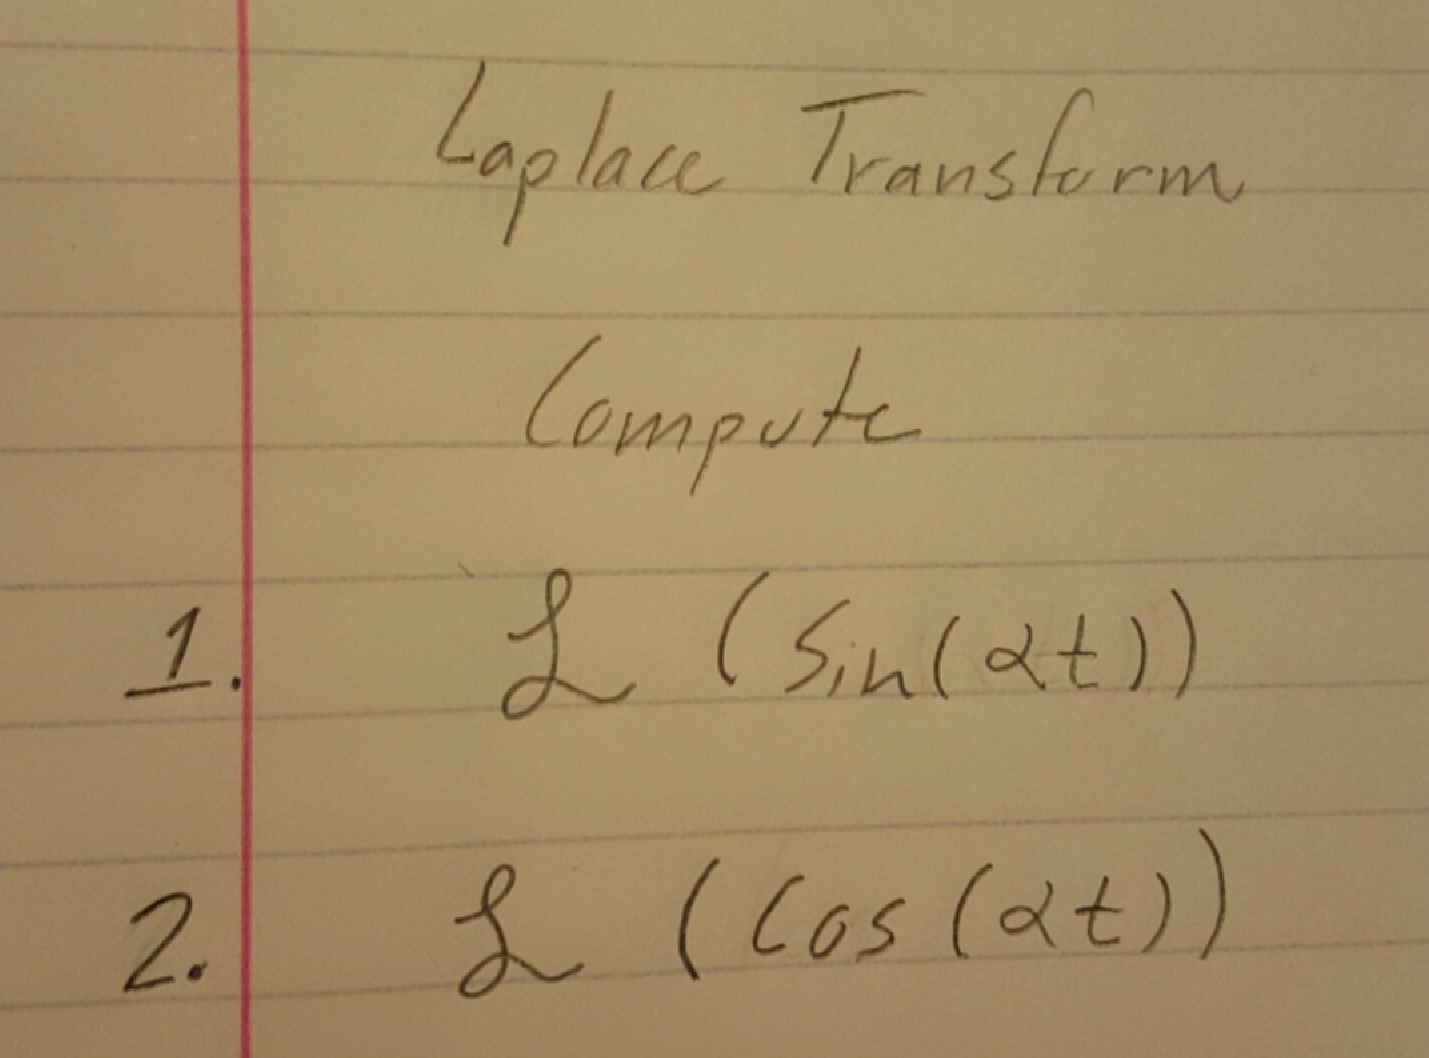 Laplace Transform
Compute
1. ℒ (Sin(αt))
2. ℒ (Cos(αt))